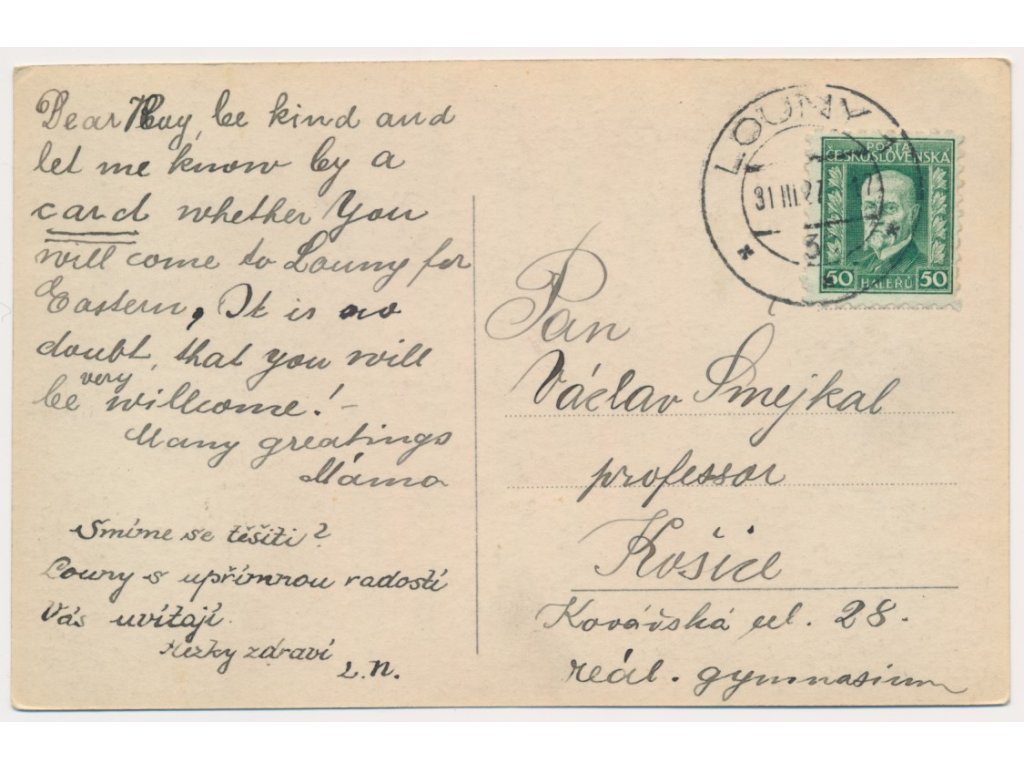 Dear Boy, be kind and
let me know by a
card whether You
will come to Louny for
Eastern, It is no
doubt, that you will
be very willcome! –
Many greatings
Máma
Smíme se těšiti?
Louny s upřímnou radostí
Vás uvítají.
Hezky zdraví
L.N.
LOUNY 1
31 III 27
* 3 *
POŠTA
ČESKOSLOVENSKA
50 HALÉŘŮ 50
Pan
Václav Smejkal
professor
Košice
Kovářská ul. 28.
reál. gymnasium